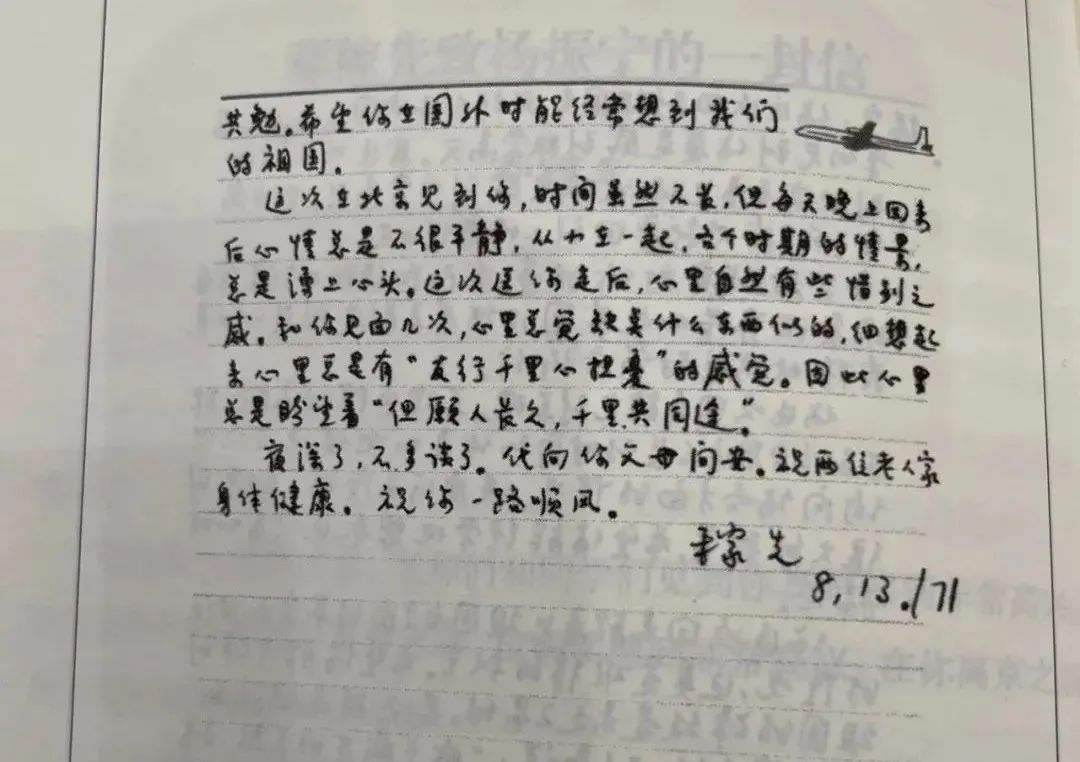 共勉。希望你在国外时能经常想到我们
的祖国。
这次在北京见到你，时间虽然不长，但每天晚上回来
后心情总是不很平静，从小在一起，各个时期的情景，
总是涌上心头。这次送你走后，心里自然有些惜别之
感。和你见面几次，心里总觉缺点什么东西似的，细想起
来心里总是有“友行千里心担忧”的感觉。因此心里
总是盼望着“但愿人长久，千里共同途。”
夜深了，不多谈了。代向你父母问安。祝两位老人家
身体健康。祝你一路顺风。
稼先
8,13./71